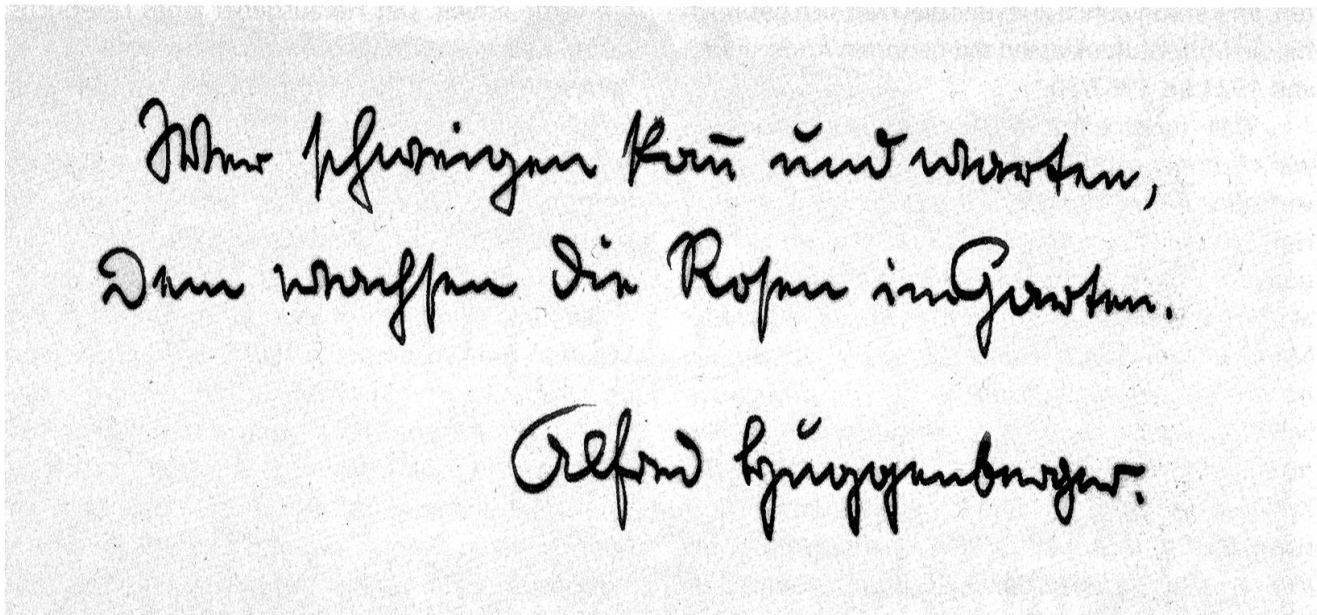 Wer schweigen kan̄ und warten,
Dem wachsen die Rosen im Garten.
Alfred Huggenberger.